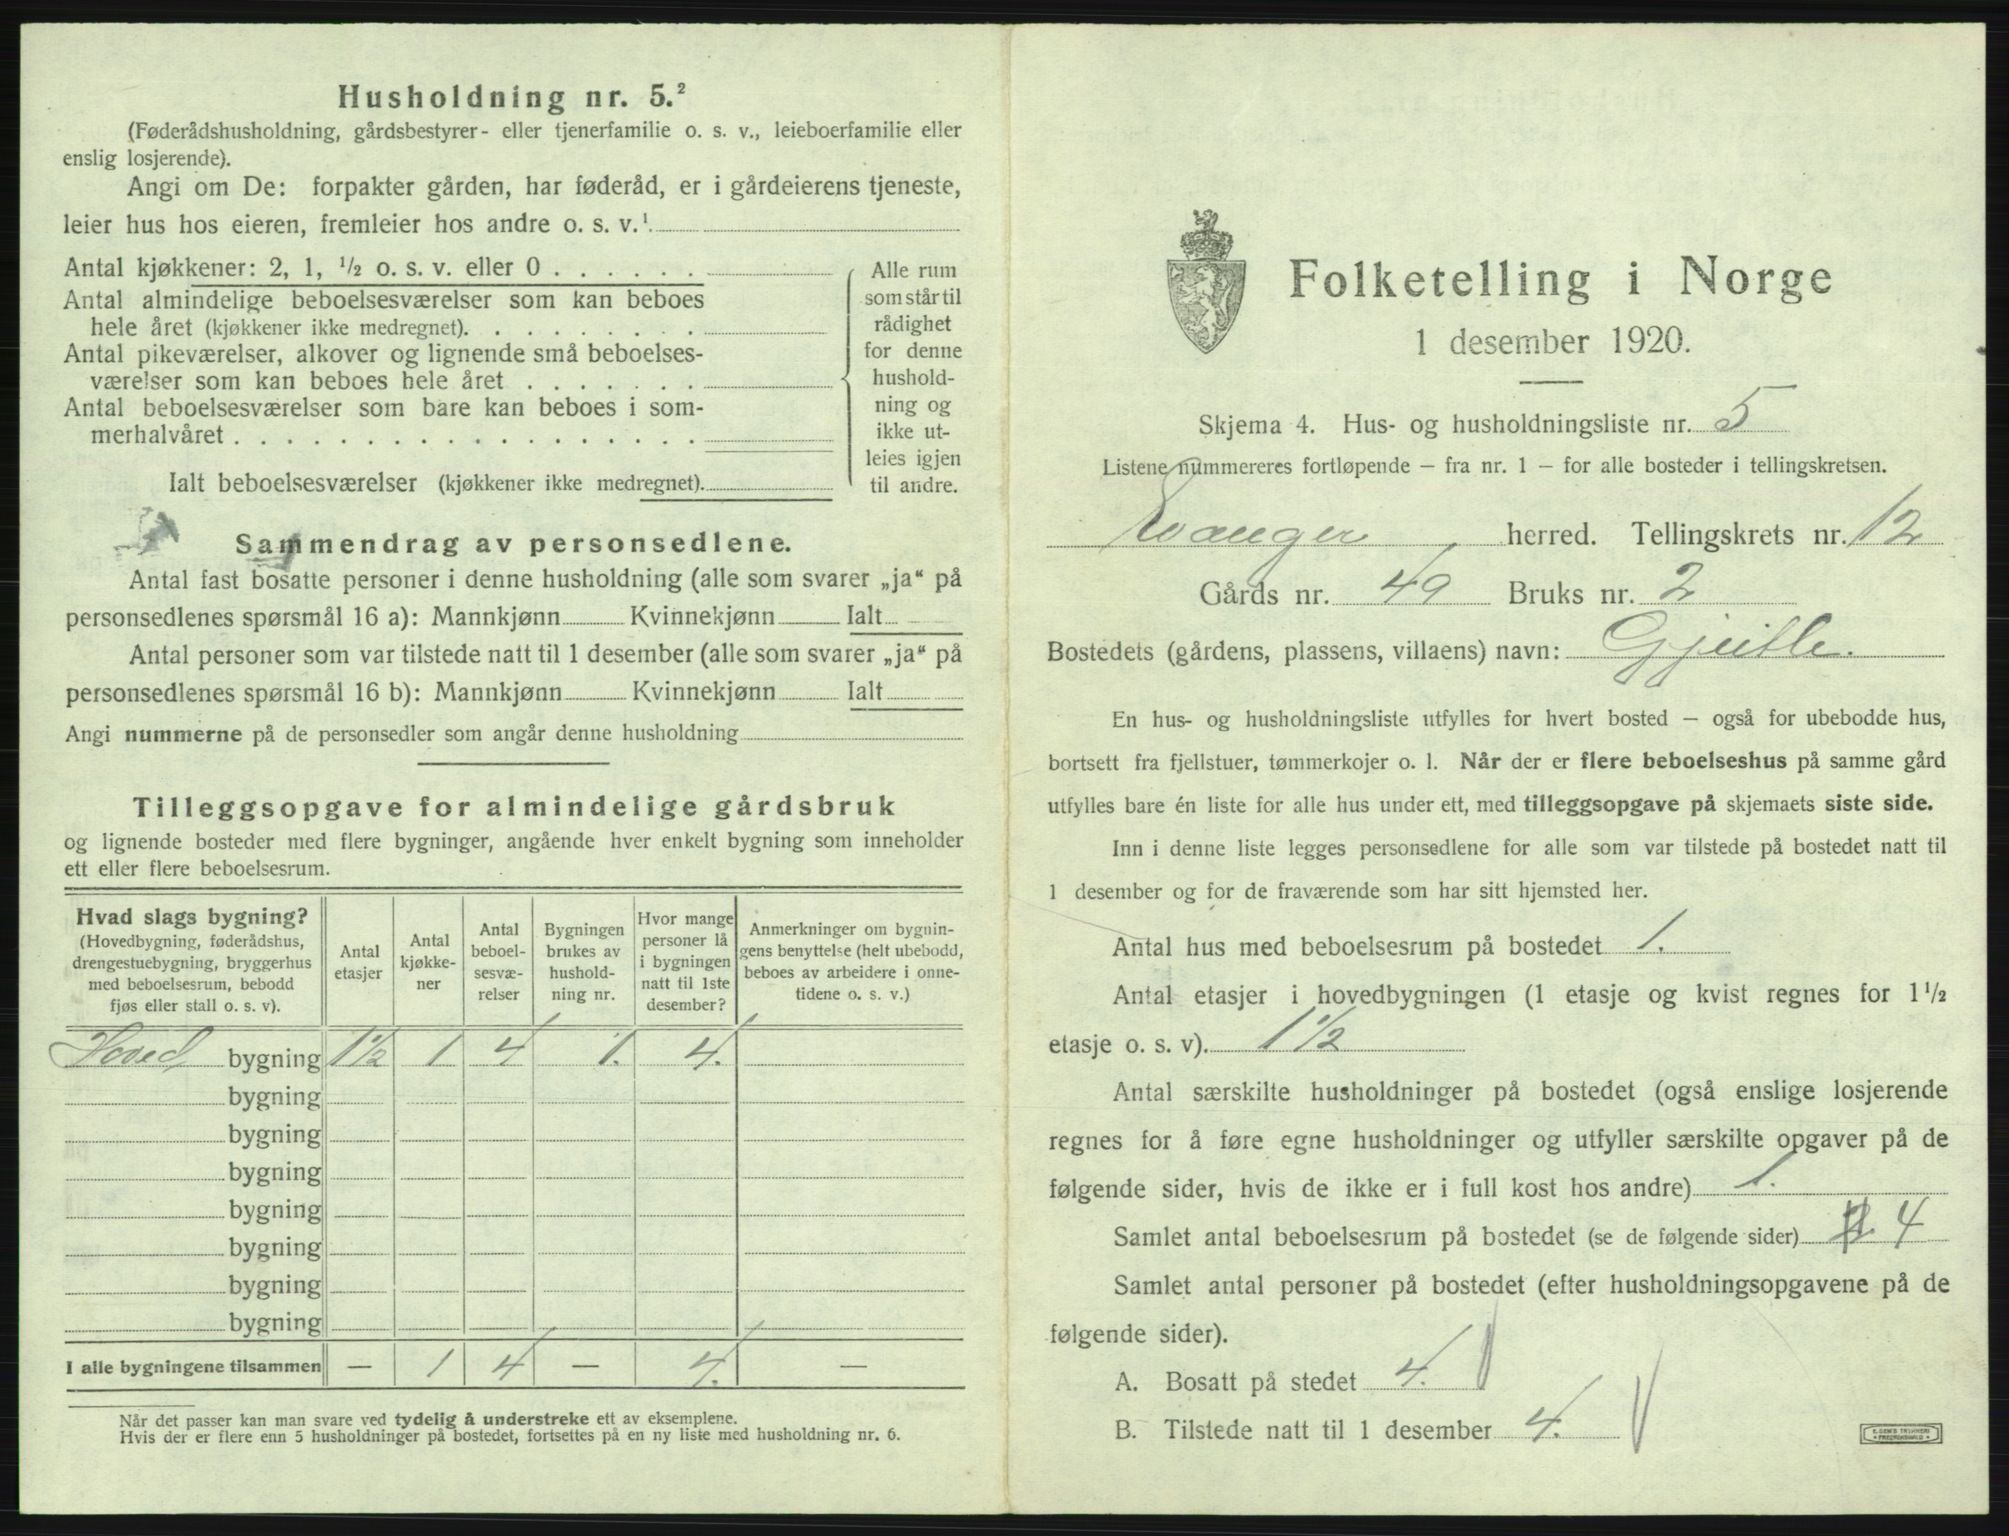 Husholdning nr. 5.²
(Føderådshusholdning, gårdsbestyrer- eller tjenerfamilie o. s. v., leieboerfamilie eller
enslig losjerende).
Angi om De: forpakter gården, har føderåd, er i gårdeierens tjeneste,
leier hus hos eieren, fremleier hos andre o. s. v.¹
Antal kjøkkener: 2, 1, ½ o. s. v. eller 0
Antal almindelige beboelsesværelser som kan beboes
hele året (kjøkkener ikke medregnet).
Antal pikeværelser, alkover og lignende små beboelses-
værelser som kan beboes hele året
Antal beboelsesværelser som bare kan beboes i som-
merhalvåret
Ialt beboelsesværelser (kjøkkener ikke medregnet).
Alle rum
som står til
rådighet
for denne
hushold-
ning og
ikke ut-
leies igjen
til andre.
Sammendrag av personsedlene.
Antal fast bosatte personer i denne husholdning (alle som svarer „ja“ på
personsedlenes spørsmål 16 a): Mannkjønn Kvinnekjønn Ialt
Antal personer som var tilstede natt til 1 desember (alle som svarer „ja“ på
personsedlenes spørsmål 16 b): Mannkjønn Kvinnekjønn Ialt
Angi nummerne på de personsedler som angår denne husholdning
Tilleggsopgave for almindelige gårdsbruk
og lignende bosteder med flere bygninger, angående hver enkelt bygning som inneholder
ett eller flere beboelsesrum.
Hvad slags bygning?
(Hovedbygning, føderådshus,
drengestuebygning, bryggerhus
med beboelsesrum, bebodd
fjøs eller stall o. s. v).
Antal
etasjer
Antal
kjøkke-
ner
Antal
beboel-
sesvæ-
relser
Bygningen
brukes av
hushold-
ning nr.
Hvor mange
personer lå
i bygningen
natt til 1ste
desember?
Anmerkninger om bygnin-
gens benyttelse (helt ubebodd,
beboes av arbeidere i onne-
tidene o. s. v.)
Hoved bygning 1½ 1 4 1. 4.
bygning
bygning
bygning
bygning
bygning
bygning
bygning
I alle bygningene tilsammen — 1 4 — 4. —
Når det passer kan man svare ved tydelig å understreke ett av eksemplene.
Hvis der er flere enn 5 husholdninger på bostedet, fortsettes på en ny liste med husholdning nr. 6.
Folketelling i Norge
1 desember 1920.
Skjema 4. Hus- og husholdningsliste nr. 5
Listene nummereres fortløpende – fra nr. 1 – for alle bosteder i tellingskretsen.
Evanger herred. Tellingskrets nr. 12
Gårds nr. 49 Bruks nr. 2
Bostedets (gårdens, plassens, villaens) navn: Gjeitle.
En hus- og husholdningsliste utfylles for hvert bosted – også for ubebodde hus,
bortsett fra fjellstuer, tømmerkojer o. l. Når der er flere beboelseshus på samme gård
utfylles bare én liste for alle hus under ett, med tilleggsopgave på skjemaets siste side.
Inn i denne liste legges personsedlene for alle som var tilstede på bostedet natt til
1 desember og for de fraværende som har sitt hjemsted her.
Antal hus med beboelsesrum på bostedet 1.
Antal etasjer i hovedbygningen (1 etasje og kvist regnes for 1½
etasje o. s. v). 1½
Antal særskilte husholdninger på bostedet (også enslige losjerende
regnes for å føre egne husholdninger og utfyller særskilte opgaver på de
følgende sider, hvis de ikke er i full kost hos andre) 1.
Samlet antal beboelsesrum på bostedet (se de følgende sider) 4
Samlet antal personer på bostedet (efter husholdningsopgavene på de
følgende sider).
A. Bosatt på stedet 4.
B. Tilstede natt til 1 desember 4.